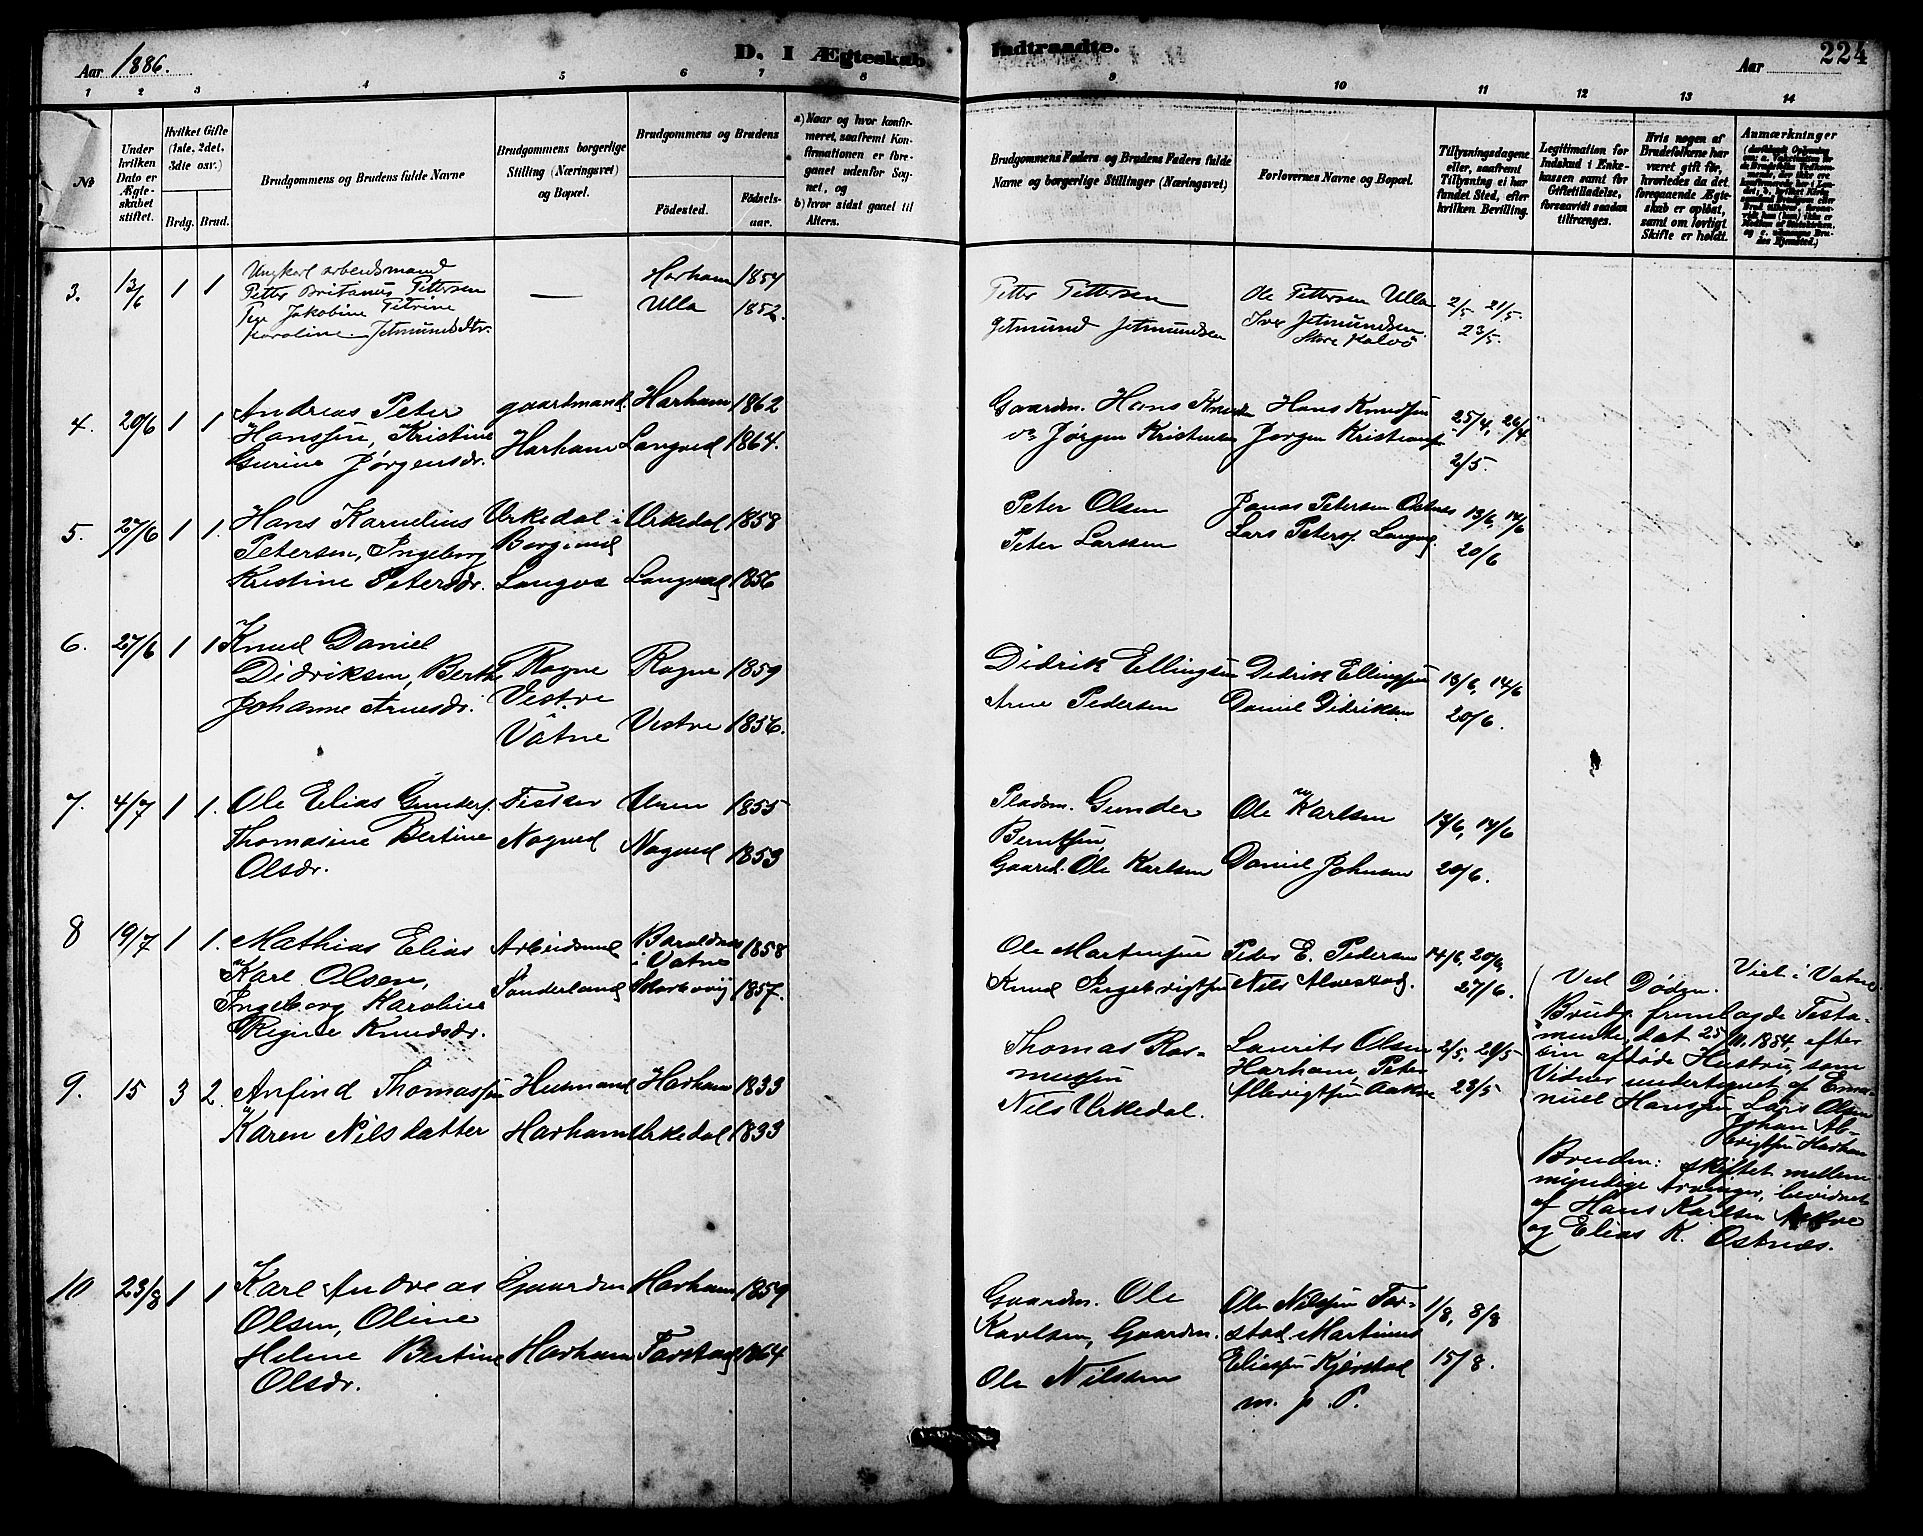 Aar 1886.
D. I Ægteskab
Indtraadte.
Aar
224
1 2 3 4 5 6 7 8 9 10 11 12 13 14
No
Under hvilken Dato er Ægteskabet stiftet.
Hvilket Gifte (1ste, 2det, 3die osv.)
Brdg. Brud.
Brudgommens og Brudens fulde Navne
Brudgommens borgerlige Stilling (Næringsvei) og Bopæl.
Brudgommens og Brudens
Fødested.
Fødselsaar.
a) Naar og hvor konfirmeret, saafremt Konfirmationen er foregaaet udenfor Sognet, og
b) hvor sidst gaaet til Alters.
Brudgommens Faders og Brudens Faders fulde Navne og borgerlige Stillinger (Næringsvei)
Forlovernes Navne og Bopæl.
Tillysningsdagene eller, saafremt Tillysning ei har fundet Sted, efter hvilken Bevilling.
Legitimation for Indskud i Enkekassen samt for Giftetilladelse, forsaavidt saadan tiltrænges.
Hvis nogen af Brudefolkene har været gift før, hvorledes da det foregaaende Ægteskab er opløst, samt om lovligt Skifte er holdt.
Anmærkninger
3. 13/6 1 1 Ungkarl arbeidsmand — Harham 1854
Petter Britanus Pettersen
Pige Jakobine Petrine Ulla 1852.
Karoline Jetmundsdtr.
Petter Pettersen Ole Pettersen Ulla 2/5 21/5.
Jetmund Jetmundsen Iver Jetmundsen 23/5.
Store Kalvö
4. 20/6 1 1 Andreas Peter gaardmand Harham 1862
Hanssen, Kristine Harham Longved 1864.
Gurine Jørgensdr.
Gaardm. Hans Knudsen Hans Knudsen 25/4, 26/4
Jørgen Kristensen Jørgen Kristensen
2/5.
5. 27/6 1 1. Hans Kornelius Urkedal i Urkedal 1858
Petersen, Ingeborg Borgund
Kristine Petersdr. Longva 1856
Peter Olsen Jonas Petersen Ostnes 13/6, 14/6
Peter Larssen Lars Peters. 20/6
6. 27/6 1 1 Knud Daniel
Didriksen, Berthe Rogne Rogne 1859
Johanne Arnesdr. Vestre
Vatne Vestre 1856.
Didrik Ellingsen Didrik Ellingsen 13/6, 14/6
Arne Pedersen Daniel Didriksen 20/6.
7. 4/7 1 1. Ole Elias Gunders. Fisker 1855
Thomasine Bertine Nogved Nogved 1853
Olsdr.
Pladsm. Gunder Ole Karlsen 13/6, 14/6
Berntsen
Gaard. Ole Karlsen Daniel Johnsen 20/6.
8 19/7 1 1. Mathias Elias Arbeidsmd Baraldsnes 1858
Karl Olsen, i Vatne
Ingeborg Karoline Sønderland 1857.
Regine Knudsdr.
Ole Martinsen Peder E. Pedersen 14/6, 20/6,
Knud Ingebrigtsen Nils Alvestad. 27/6.
Viet i Vatne.
9. 15 3 2. Anfind Thomassen Husmand Harham 1833
Karen Nilsdatter Harham Urkedal 1833
Thomas Rasmussen Laurits Olsen 2/5, 21/5
Harham Peter
Nils Urkedal. Allerigtsen Aakre 23/5
Ved Døden.
Brudg. fremlagde Testamente, dat 25/11. 1854, efter
sin afdøde Hustru, som
Vidner undertegnet af Emanuel Hanssen Lars Olsen
Johan Albrigtsen Harham
Bruden: skiftet mellem
myndige Arvinger, bevidnet
af Hans Karlsen Aakre
og Elias K. Ostnes.
10 23/8 1 1 Karl Andreas Gaardm Harham 1859
Olsen, Oline
Helene Bertine Harham Farstad 1864
Olsdr.
Gaardm. Ole Ole Nilssen Farstad 1/8, 8/8
Karlsen, Gaardm. Martinus
Ole Nilssen Eliassen Kjerstad 15/8.
m. p. P.